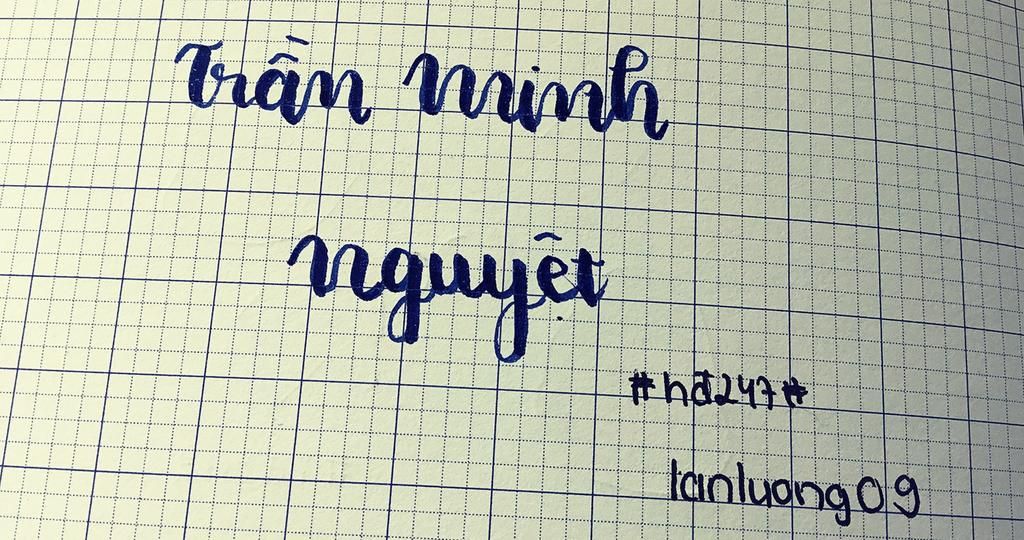 Trần Minh
Nguyệt
#hđ247#
lanluong09